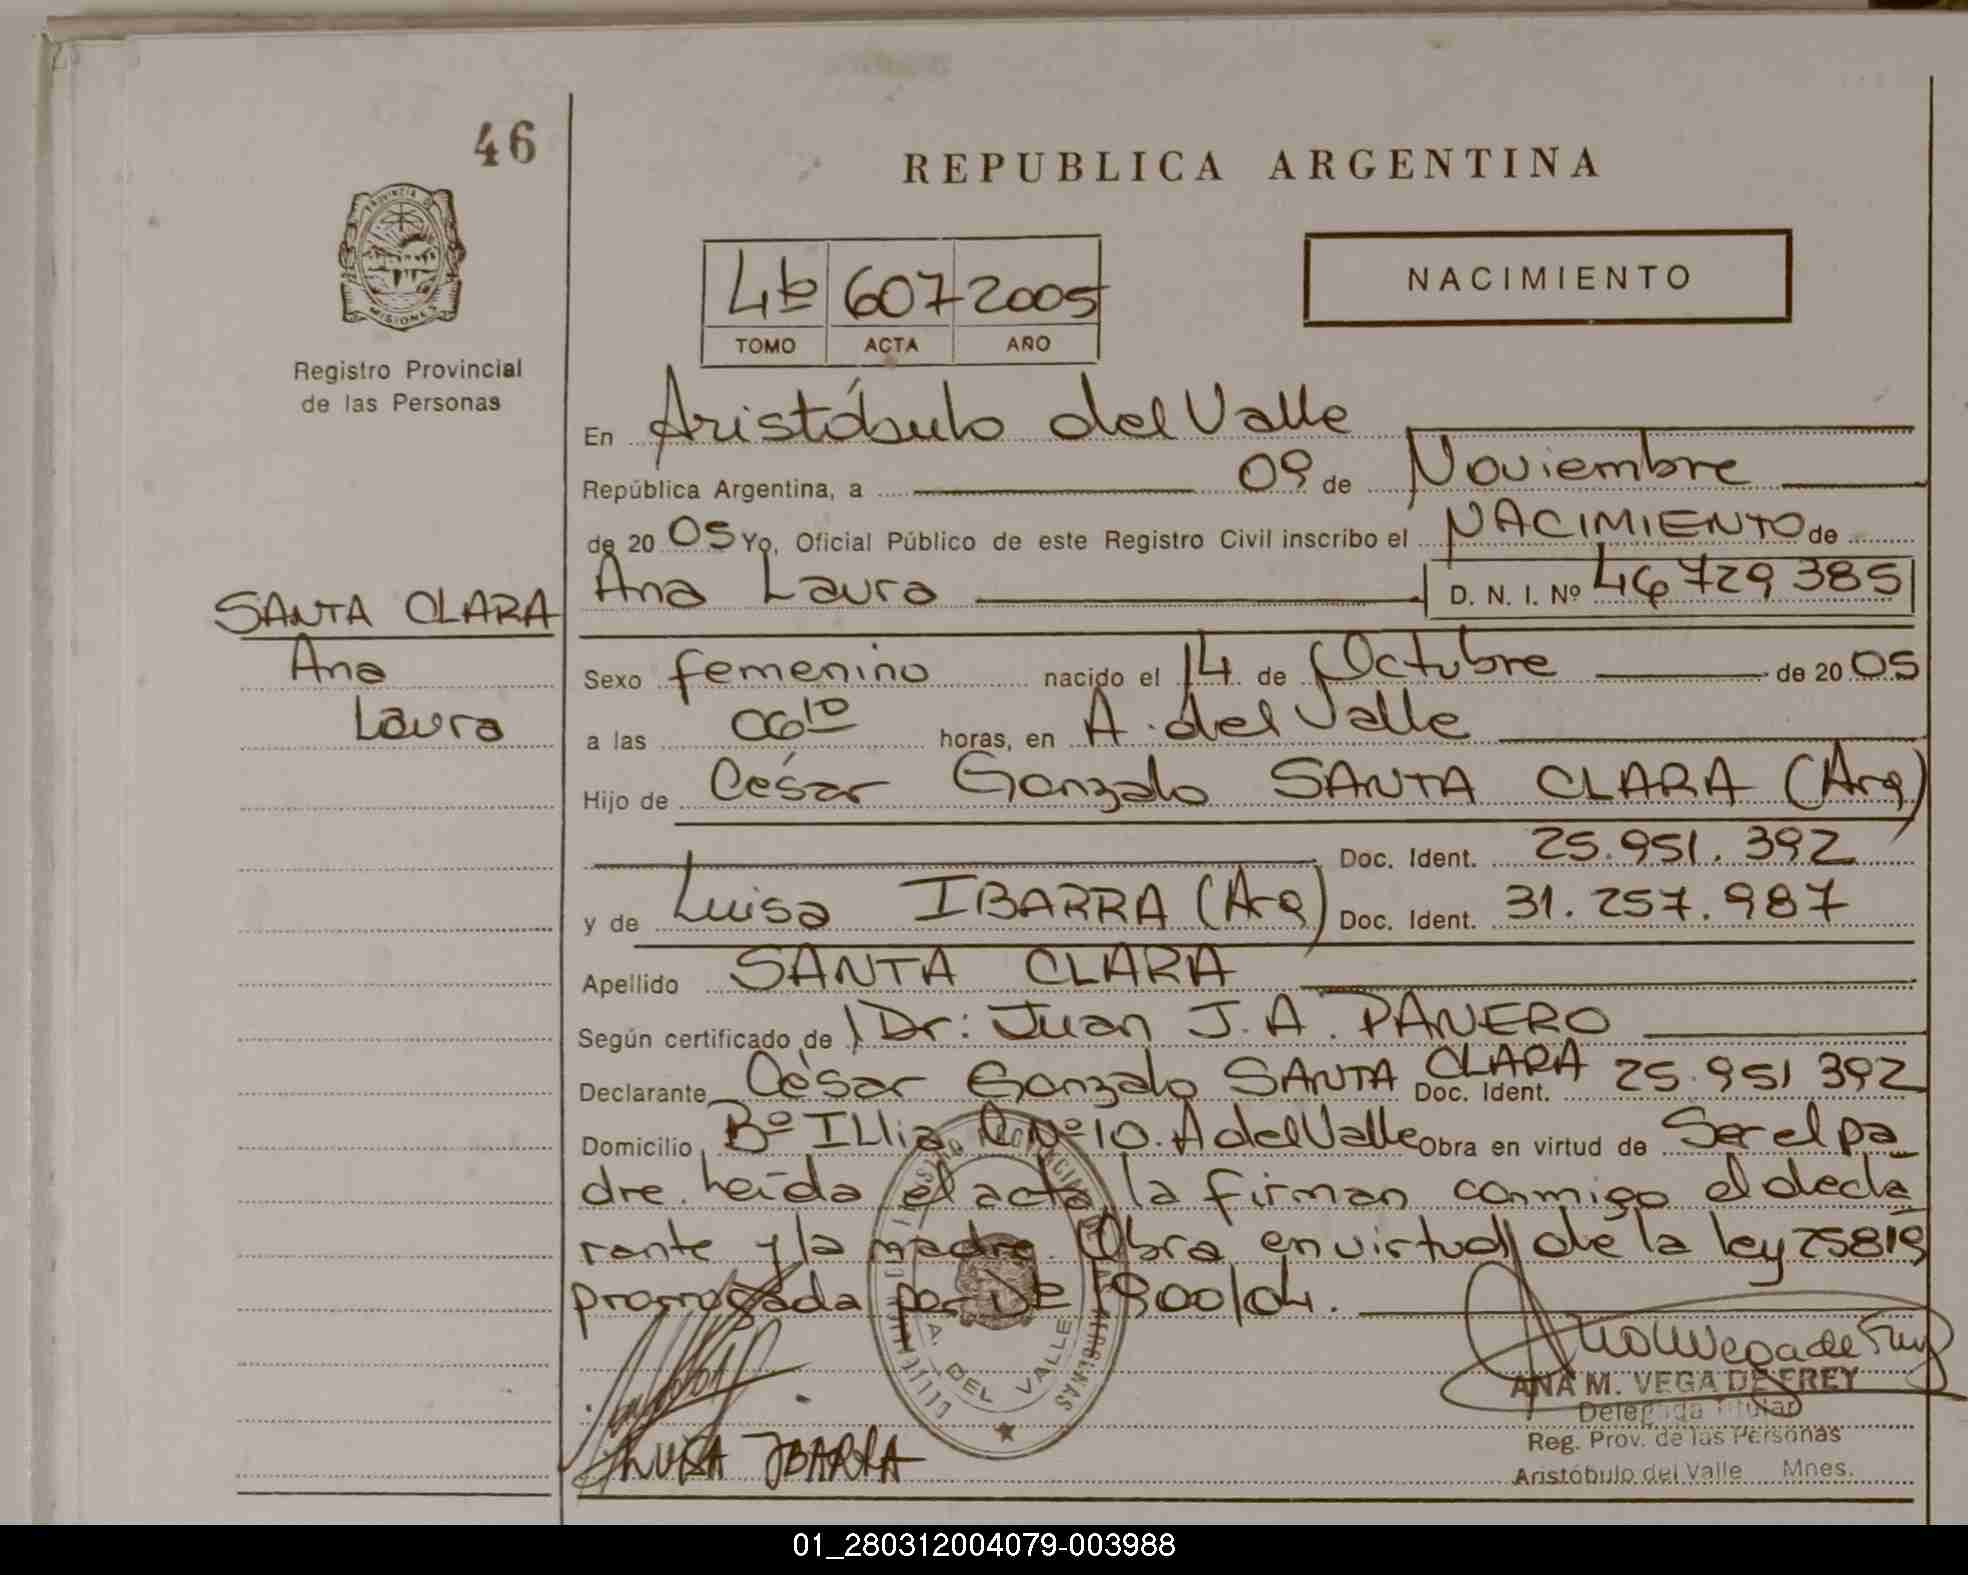 46
REPUBLICA ARGENTINA
PROVINCIA D
MISIONES
4to 607 2005
TOMO ACTA AÑO
NACIMIENTO
Registro Provincial
de las Personas
En Aristóbulo del Valle
República Argentina, a 09 de Noviembre
de 20 05 Yo, Oficial Público de este Registro Civil inscribo el NACIMIENTO de
SANTA CLARA
Ana
Laura
Ana Laura D. N. I. Nº 46 729 385
Sexo femenino nacido el 14 de Octubre de 20 05
a las 06 10 horas, en A. del Valle
Hijo de César Gonzalo SANTA CLARA (Arg)
Doc. Ident. 25.951.392
y de Luisa IBARRA (Arg) Doc. Ident. 31.257.987
Apellido SANTA CLARA
Según certificado de Dr: Juan J. A. PANERO
Declarante César Gonzalo SANTA CLARA Doc. Ident. 25.951 392
Domicilio Bº ILlia C Nº 10. A del Valle Obra en virtud de Ser el pa
dre. Leída el acta la firman conmigo el decla
rante y la madre. Obra en virtud de la ley 25819
prorrogada por 1800/04.
A. DEL VALLE
LUISA IBARRA
ANA M. VEGA DE FREY
Delegada Titular
Reg. Prov. de las Personas
Aristóbulo del Valle Mnes.
01_280312004079-003988